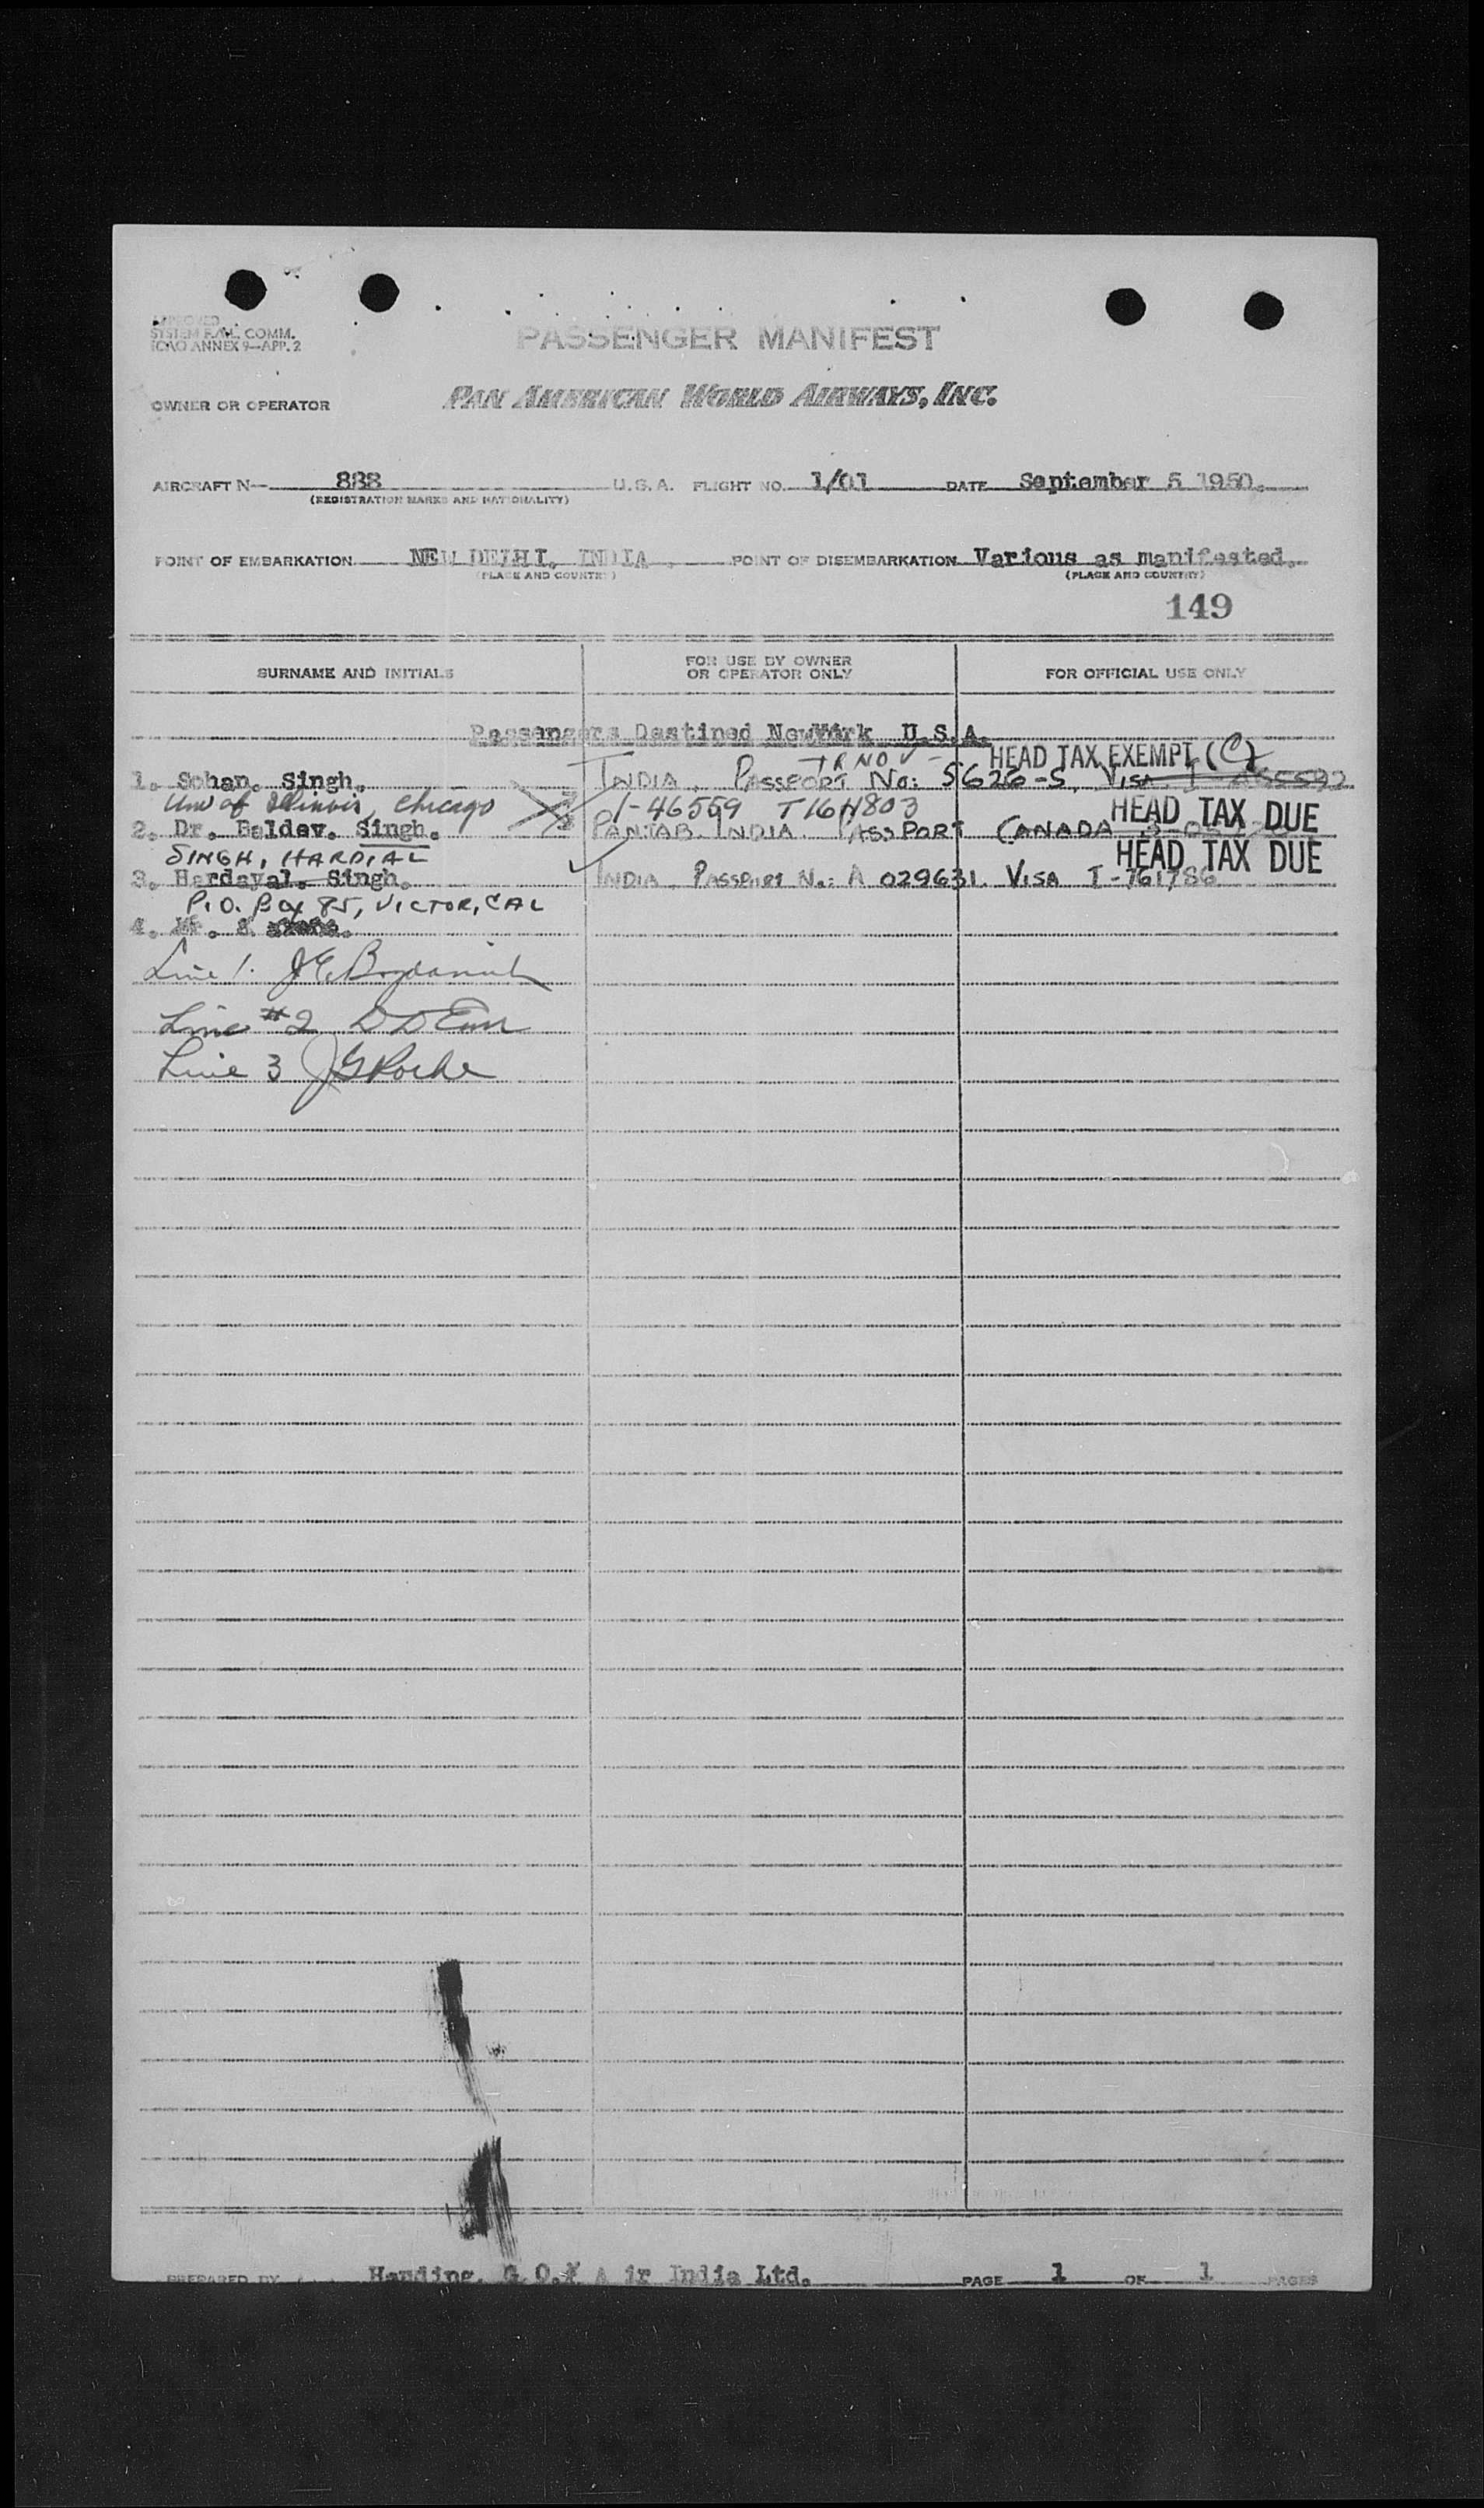 APPROVED
SYSTEM F.A.L. COMM.
ICAO ANNEX 9—APP. 2
PASSENGER MANIFEST
OWNER OR OPERATOR PAN AMERICAN WORLD AIRWAYS, INC.
AIRCRAFT N— 888 U.S.A. FLIGHT NO. 1/01 DATE September 5 1950.
(REGISTRATION MARKS AND NATIONALITY)
POINT OF EMBARKATION NEW DELHI. INDIA . POINT OF DISEMBARKATION Various as manifested.
(PLACE AND COUNTRY) (PLACE AND COUNTRY)
149
SURNAME AND INITIALS FOR USE BY OWNER OR OPERATOR ONLY FOR OFFICIAL USE ONLY
Passengers Destined NewYork U.S.A.
TR NOV - HEAD TAX EXEMPT (C)
1. Sohan. Singh. INDIA, PASSPORT No: 5626-S, VISA I
Univ of Illinois, Chicago 1-46559 T164803 HEAD TAX DUE
2. Dr. Baldev. Singh. PANJAB. INDIA PASSPORT CANADA
SINGH, HARDIAL HEAD TAX DUE
3. Hardayal. Singh. INDIA, PASSPORT No.: A 029631. VISA I-761786
P.O. Box 85, VICTOR, CAL
4.
Line 1.
Line #2
Line 3 J G Roche
PREPARED BY Handing. G.O. Air India Ltd. PAGE 1 OF 1 PAGES